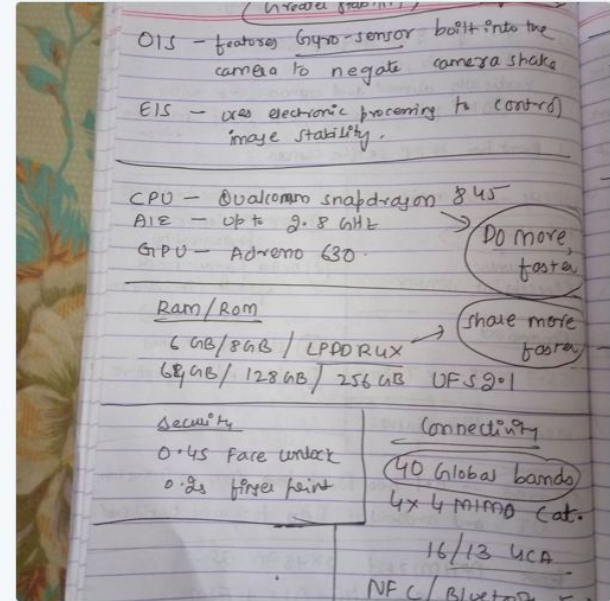 (Greater stability)
OIS - features Gyro-sensor built into the
camera to negate camera shake
EIS - uses electronic processing to control
image stability.
CPU - Qualcomm snapdragon 845
AIE - Up to 2.8 GHz
GPU - Adreno 630.
Do more,
faster
Ram/Rom
6 GB/8GB / LPDDR4X
64GB/128GB/256GB UFS2.1
share more
faster
Security
0.4s Face unlock
0.2s finger print
Connectivity
40 Global bands
4x4 MIMO Cat.
16/13 4CA
NFC/Bluetooth